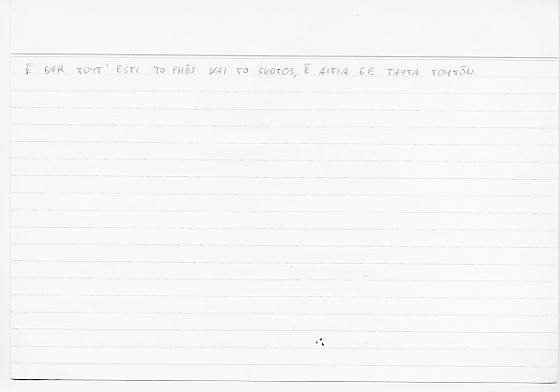 Ē GAR TOYT' ESTI TO PHŌS KAI TO SKOTOS, Ē AITIA GE TAYTA TOYTŌN.